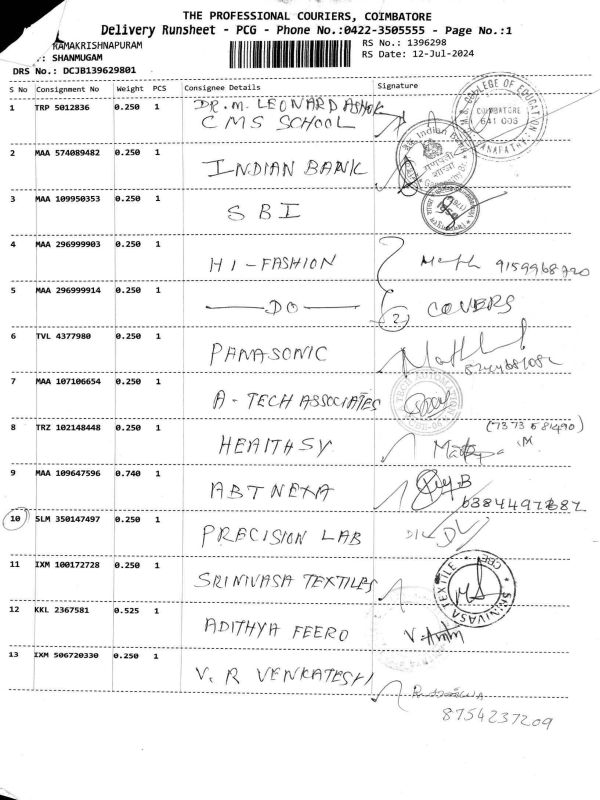 THE PROFESSIONAL COURIERS, COIMBATORE
Delivery Runsheet - PCG - Phone No.:0422-3505555 - Page No.:1
RAMAKRISHNAPURAM
RS No.: 1396298
: SHANMUGAM
RS Date: 12-Jul-2024
DRS No.: DCJB139629801
S No Consignment No Weight PCS Consignee Details Signature
1 TRP 5012836 0.250 1 DR. M. LEONARD ASHOK
CMS SCHOOL
COLLEGE OF EDUCATION
COIMBATORE
641 006
2 MAA 574089482 0.250 1 INDIAN BANK
Indian Bank
3 MAA 109950353 0.250 1 SBI
4 MAA 296999903 0.250 1 HI-FASHION
5 MAA 296999914 0.250 1 DO 2 COVERS
6 TVL 4377980 0.250 1 PANASONIC
7 MAA 107106654 0.250 1 A-TECH ASSOCIATES
8 TRZ 102148448 0.250 1 HEAlTHSY
9 MAA 109647596 0.740 1 ABT NEXA
10 SLM 350147497 0.250 1 PRECISION LAB
11 IXM 100172728 0.250 1 SRINIVASA TEXTILES
SRINIVASA TEXTILE * CBE *
12 KKL 2367581 0.525 1 ADITHYA FEERO
13 IXM 506720330 0.250 1 V. R VENKATESH
8754237209